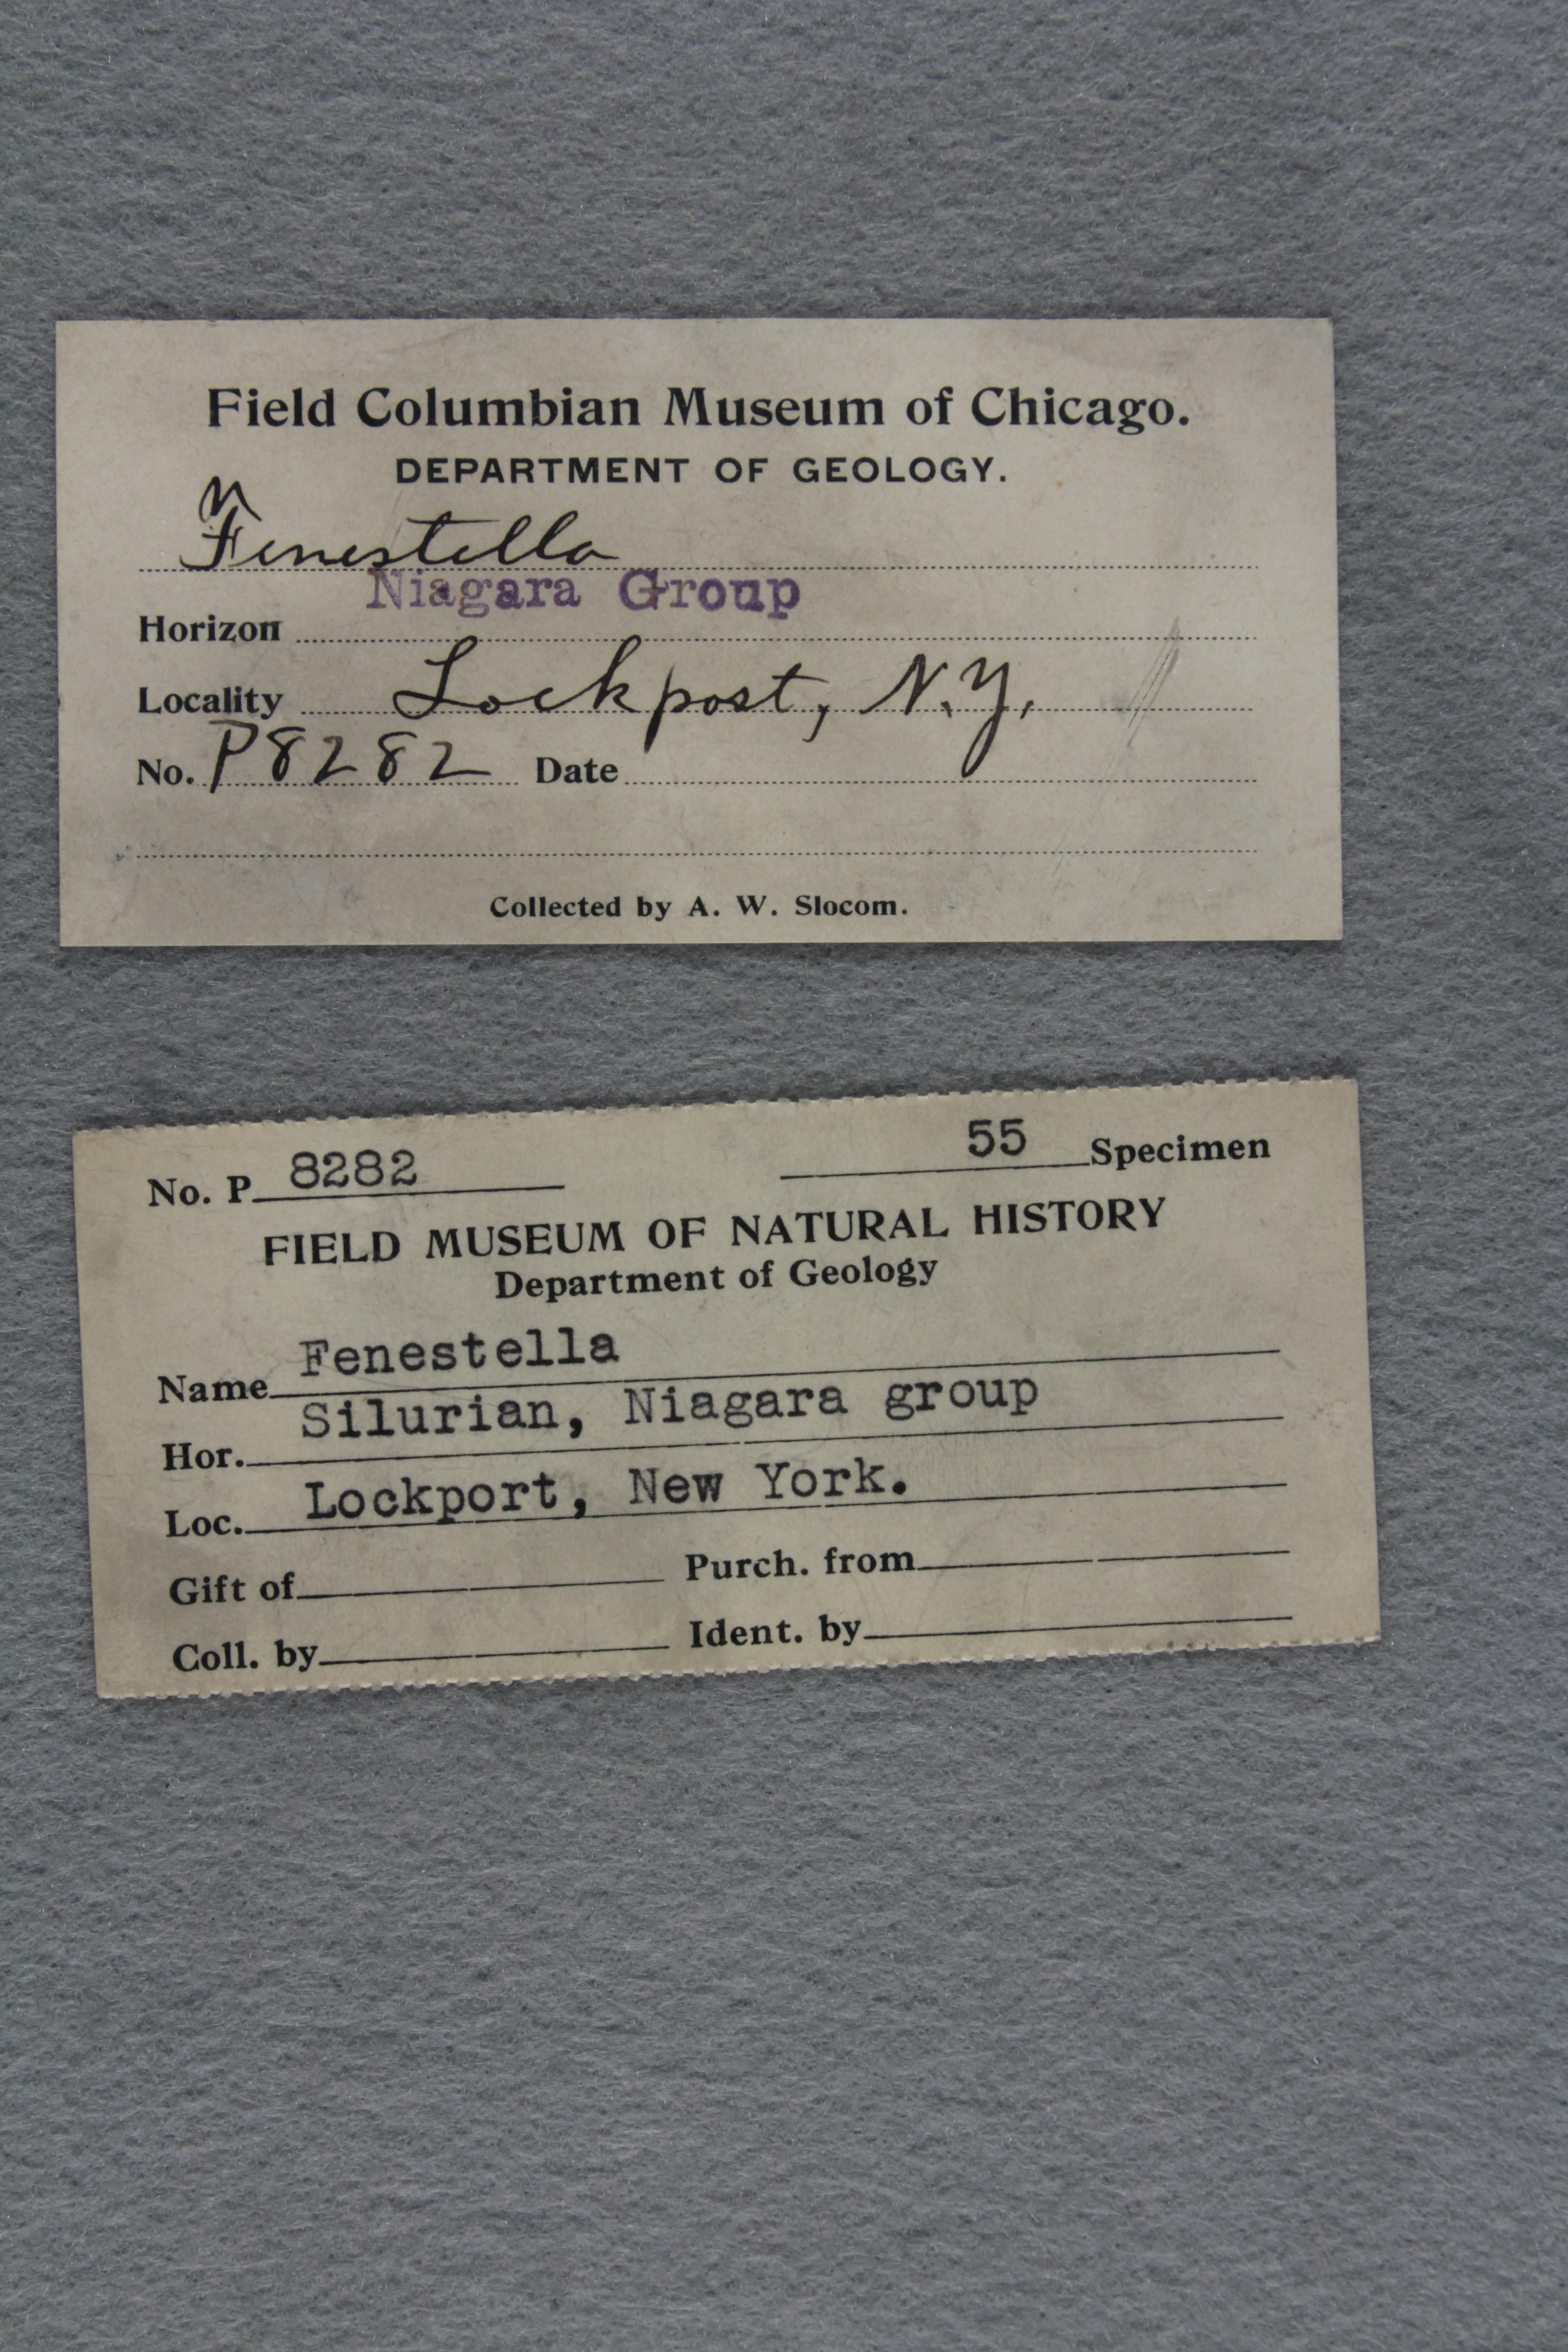 Field Columbian Museum of Chicago.
DEPARTMENT OF GEOLOGY.
Fenestella
Niagara Group
Horizon
Locality Lockport, N.Y.
No. P8282 Date
Collected by A. W. Slocom.
No. P 8282 55 Specimen
FIELD MUSEUM OF NATURAL HISTORY
Department of Geology
Name Fenestella
Hor. Silurian, Niagara group
Loc. Lockport, New York.
Gift of Purch. from
Coll. by Ident. by